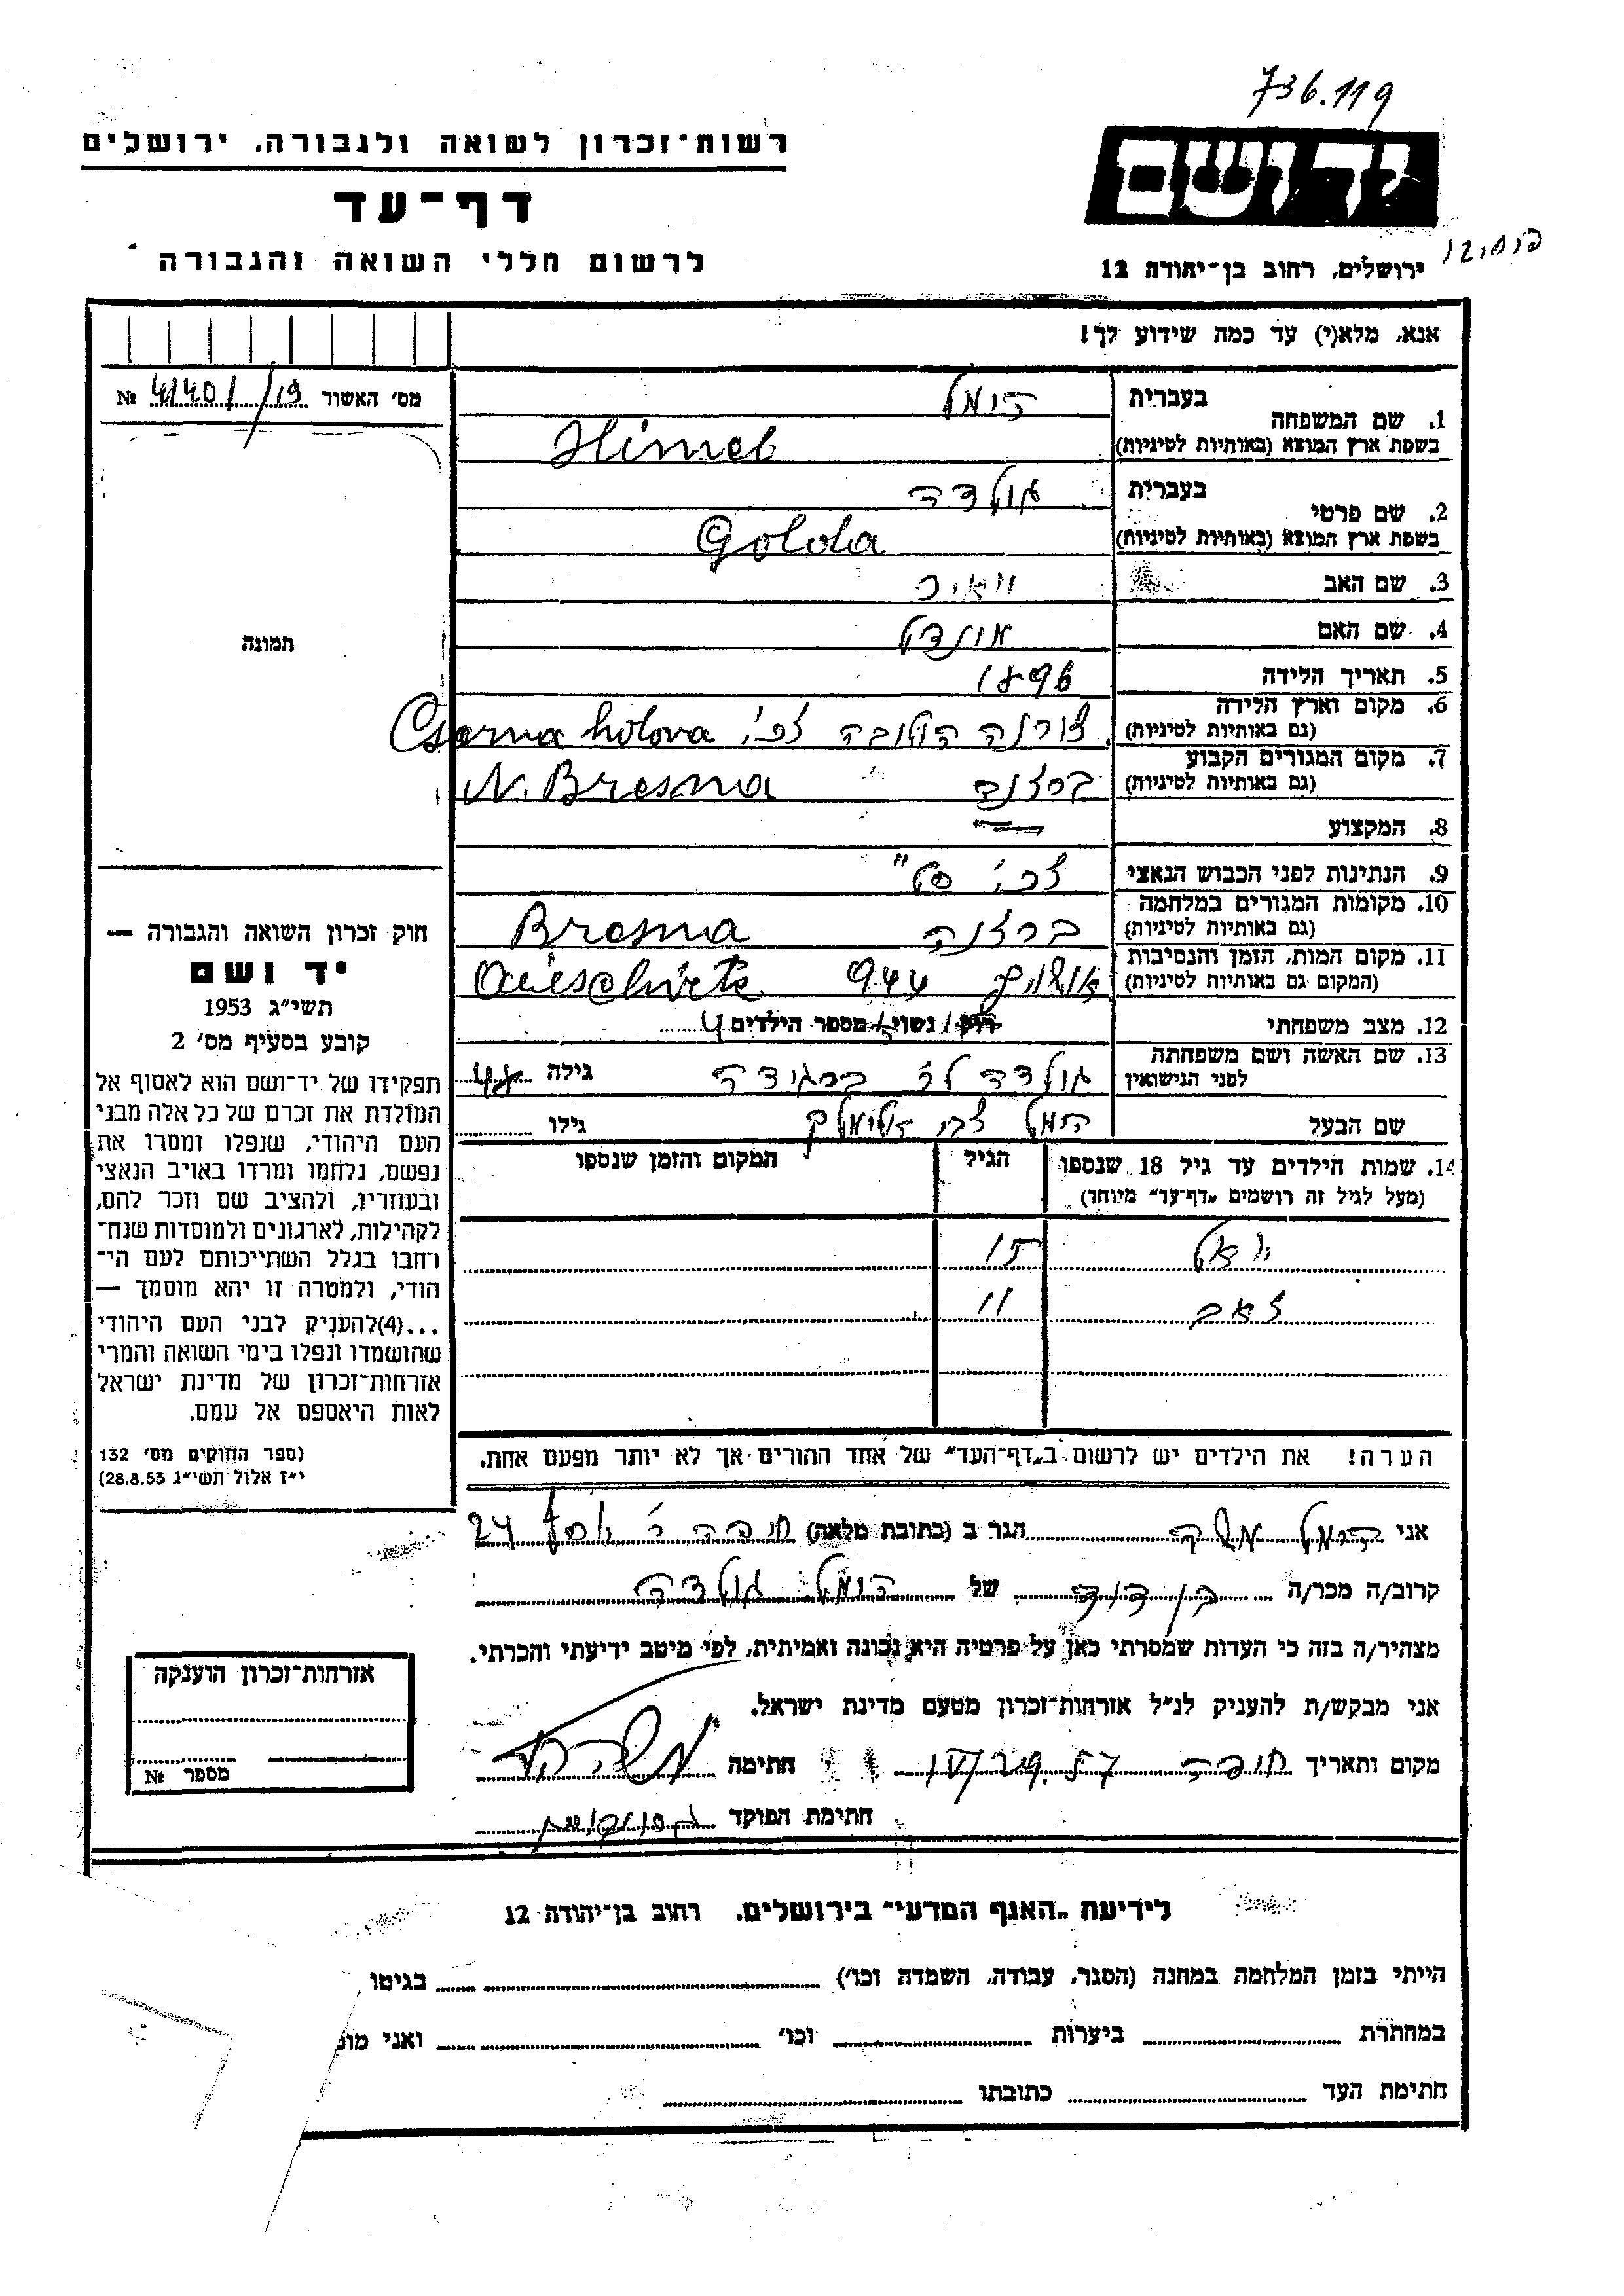 736.119
רשות־זכרון לשואה ולגבורה, ירושלים
דף־עד
לרשום חללי השואה והגבורה
יד ושם
ירושלים, רחוב בן־יהודה 12
אנא, מלא(י) עד כמה שידוע לך!
מס' האשור № 41401/19
1. שם המשפחה בעברית הימל
בשפת ארץ המוצא (באותיות לטיניות) Himel
2. שם פרטי בעברית גולדה
בשפת ארץ המוצא (באותיות לטיניות) Golda
3. שם האב מאיר
4. שם האם
5. תאריך הלידה 1896
6. מקום וארץ הלידה (גם באותיות לטיניות) צורנה הולובה צכ' Csorna holova
7. מקום המגורים הקבוע (גם באותיות לטיניות) ברזנה N. Bresna
8. המקצוע
9. הנתינות לפני הכבוש הנאצי צכ' סל"
10. מקומות המגורים במלחמה (גם באותיות לטיניות) ברזנה Bresna
11. מקום המות, הזמן והנסיבות (המקום גם באותיות לטיניות) אושויץ 944 Auieschvits
12. מצב משפחתי רוק/נשוי/מספר הילדים 4
13. שם האשה ושם משפחתה לפני הנישואין גולדה לב' ברגידה גילה 48
שם הבעל הימל צבי אלימלך גילו
14. שמות הילדים עד גיל 18 שנספו (מעל לגיל זה רושמים "דף־עד" מיוחד) הגיל המקום והזמן שנספו
יואל 15
זאב 11
הערה! את הילדים יש לרשום ב"דף־העד" של אחד ההורים אך לא יותר מפעם אחת.
תמונה
חוק זכרון השואה והגבורה —
יד ושם
תשי"ג 1953
קובע בסעיף מס' 2
תפקידו של יד־ושם הוא לאסוף אל
המולדת את זכרם של כל אלה מבני
העם היהודי, שנפלו ומסרו את
נפשם, נלחמו ומרדו באויב הנאצי
ובעוזריו, ולהציב שם וזכר להם,
לקהילות, לארגונים ולמוסדות שנח־
רבו בגלל השתייכותם לעם הי־
הודי, ולמטרה זו יהא מוסמך —
...(4)להעניק לבני העם היהודי
שהושמדו ונפלו בימי השואה והמרי
אזרחות־זכרון של מדינת ישראל
לאות היאספם אל עמם.
(ספר החוקים מס' 132
י"ז אלול תשי"ג 28.8.53)
אני הימל משה הגר ב (כתובת מלאה) חיפה ר' 24
קרוב/ה מכר/ה בן דוד של הימל גולדה
מצהיר/ה בזה כי העדות שמסרתי כאן על פרטיה היא נכונה ואמיתית, לפי מיטב ידיעתי והכרתי.
אני מבקש/ת להעניק לנ"ל אזרחות־זכרון מטעם מדינת ישראל.
מקום ותאריך חיפה חתימה
חתימת הפוקד
אזרחות־זכרון הוענקה
מספר №
לידיעת "האגף המדעי" בירושלים, רחוב בן־יהודה 12
הייתי בזמן המלחמה במחנה (הסגר, עבודה, השמדה וכו') בגיטו
במחתרת ביערות וכו' ואני
חתימת העד כתובתו